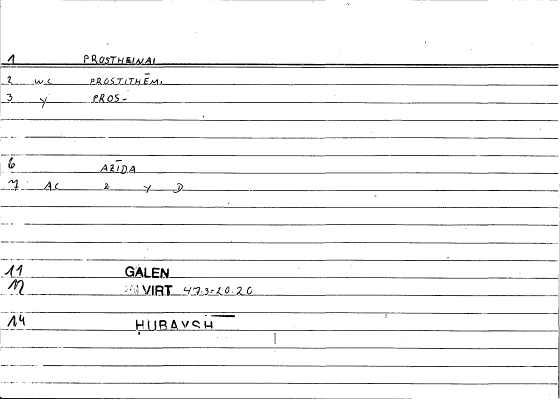 1 PROSTHEINAI
2 WC PROSTITHĒMI
3 Y PROS-
6 AZĪDA
7 AC 2 Y D
11 GALEN
12 VIRT 473=20.20
14 ḤUBAYSH